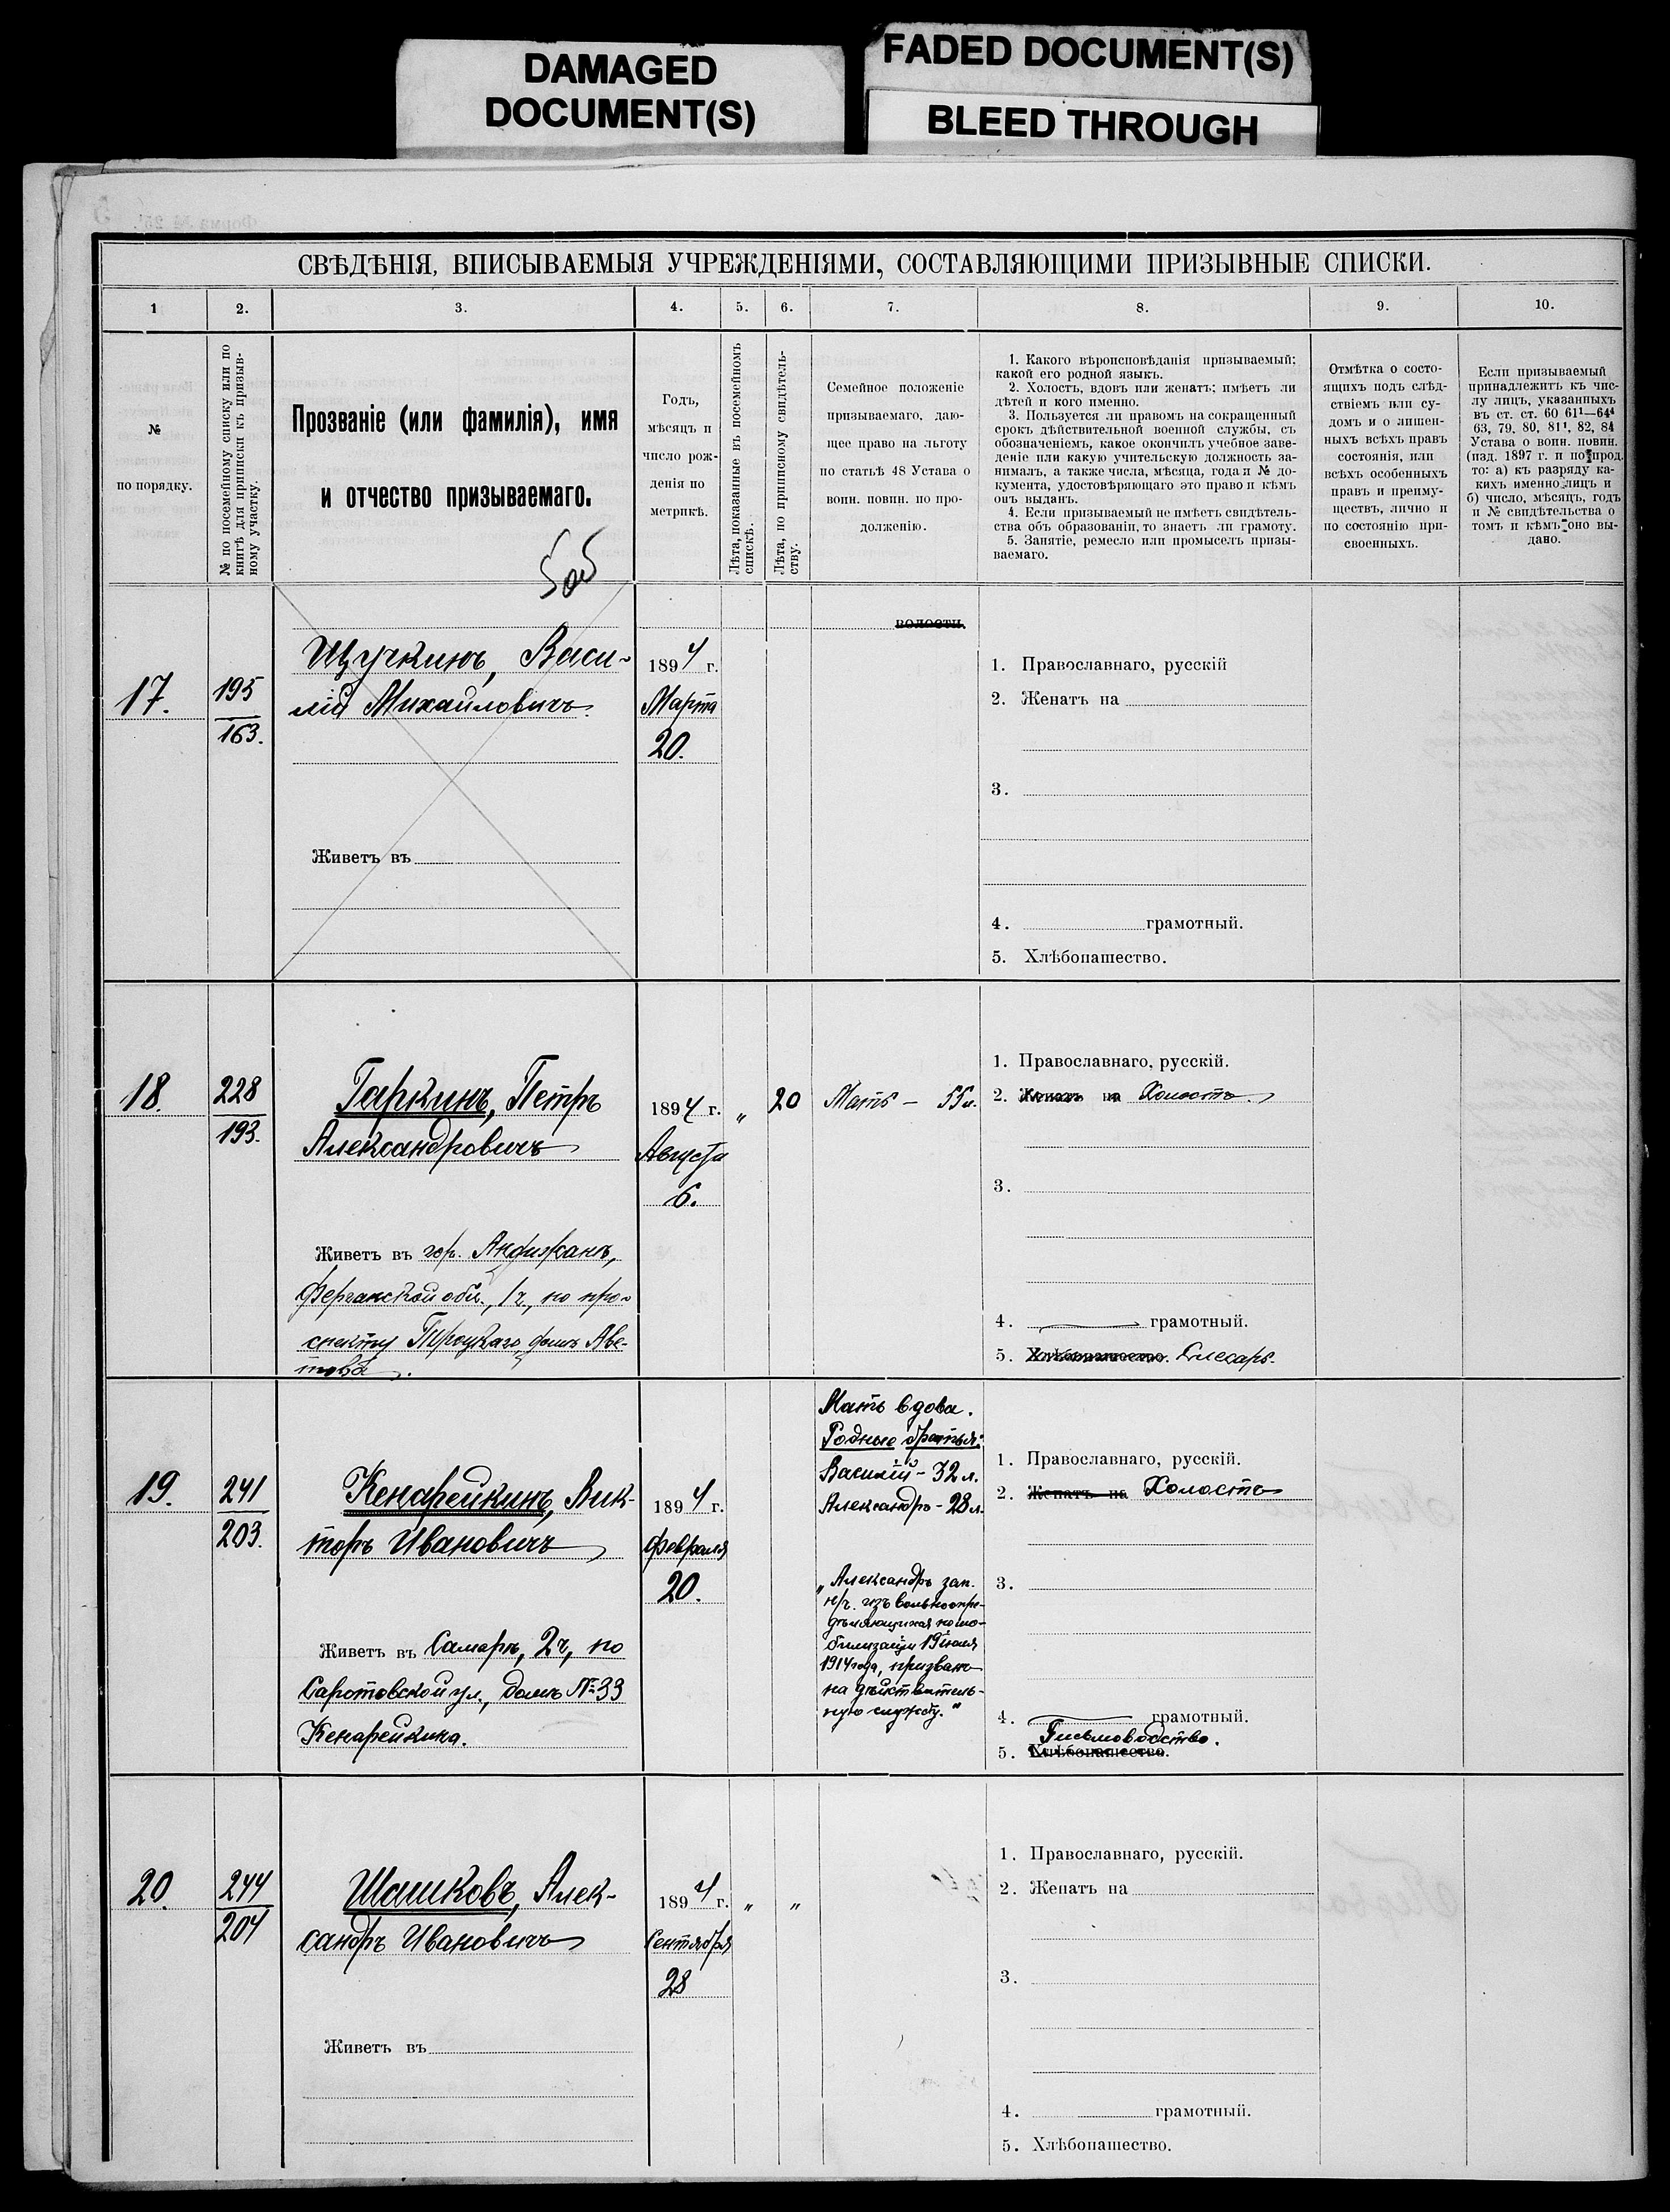 DAMAGED
DOCUMENT(S)
FADED DOCUMENT(S)
BLEED THROUGH
СВѢДѢНІЯ, ВПИСЫВАЕМЫЯ УЧРЕЖДЕНІЯМИ, СОСТАВЛЯЮЩИМИ ПРИЗЫВНЫЕ СПИСКИ.
1 2. 3. 4. 5. 6. 7. 8. 9. 10.
№
по порядку.
№ по посемейному списку или по
книгѣ для приписки къ призыв-
ному участку.
Прозваніе (или фамилія), имя
и отчество призываемаго.
Годъ,
мѣсяцъ и
число рож-
денія по
метрикѣ.
Лѣта, показанные въ посемейномъ
спискѣ.
Лѣта, по приписному свидѣтель-
ству.
Семейное положеніе
призываемаго, даю-
щее право на льготу
по статьѣ 48 Устава о
воин. повин. по про-
долженію.
1. Какого вѣроисповѣданія призываемый;
какой его родной языкъ.
2. Холостъ, вдовъ или женатъ; имѣетъ ли
дѣтей и кого именно.
3. Пользуется ли правомъ на сокращенный
срокъ дѣйствительной военной службы, съ
обозначеніемъ, какое окончилъ учебное заве-
деніе или какую учительскую должность за-
нималъ, а также числа, мѣсяца, года и № до-
кумента, удостовѣряющаго это право и кѣмъ
онъ выданъ.
4. Если призываемый не имѣетъ свидѣтель-
ства объ образованіи, то знаетъ ли грамоту.
5. Занятіе, ремесло или промыселъ призы-
ваемаго.
Отмѣтка о состо-
ящихъ подъ слѣд-
ствіемъ или су-
домъ и о лишен-
ныхъ всѣхъ правъ
состоянія, или
всѣхъ особенныхъ
правъ и преиму-
ществъ, лично и
по состоянію при-
своенныхъ.
Если призываемый
принадлежитъ къ чис-
лу лицъ, указанныхъ
въ ст. ст. 60 61¹—64⁴
63, 79, 80, 81¹, 82, 84
Устава о воин. повин.
(изд. 1897 г. и по прод.
то: а) къ разряду ка-
кихъ именно лицъ и
б) число, мѣсяцъ, годъ
и № свидѣтельства о
томъ и кѣмъ оно вы-
дано.
17.
195
163.
Щучкинъ, Васи-
лій Михаиловичъ.
Живетъ въ
1894 г.
Марта
20.
волости.
1. Православнаго, русскій
2. Женатъ на
3.
4. грамотный.
5. Хлѣбопашество.
18.
228
193.
Гаркинъ, Петръ
Александровичъ
Живетъ въ гор. Андижанѣ,
Ферганской обл., 1 ч., по про-
спекту Троцкаго, домъ Аве-
това.
1894 г.
Августа
6.
„
20
Мать — 55 л.
1. Православнаго, русскій.
2. Женатъ на Холостъ.
3.
4. грамотный.
5. Хлѣбопашество. Слесарь.
19.
241
203.
Кенарейкинъ, Вик-
торъ Ивановичъ
Живетъ въ Самарѣ, 2 ч, по
Саратовской ул., домъ № 33
Кенарейкина.
1894 г.
Февраля
20.
Мать вдова.
Родные братья:
Василій - 32 л.
Александръ - 28 л.
„Александръ зап.
н/ч. изъ вольноопре-
дѣляющихся по мо-
билизаціи 19 іюля
1914 года, призванъ
на дѣйствитель-
ную службу."
1. Православнаго, русскій.
2. Женатъ на Холостъ
3.
4. грамотный.
Письмоводство.
5. Хлѣбопашество.
20.
244
204
Шашковъ, Алек-
сандръ Ивановичъ
Живетъ въ
1894 г.
Сентября
28
„ „
1. Православнаго, русскій.
2. Женатъ на
3.
4. грамотный.
5. Хлѣбопашество.